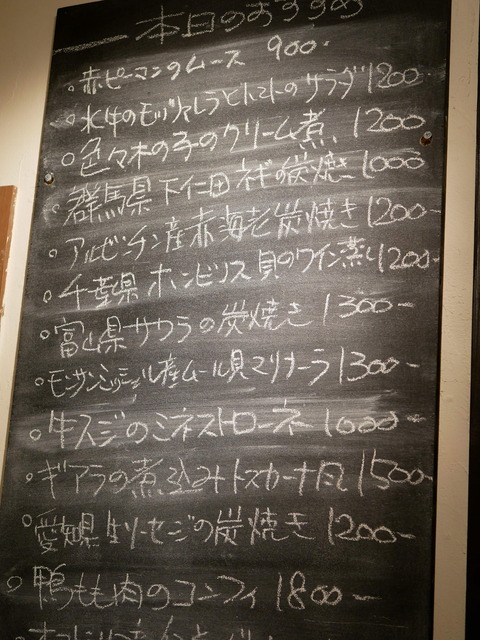 本日のおすすめ
。赤ピーマンのムース 900-
。水牛のモッツァレラとトマトのサラダ 1200-
。色々木の子のクリーム煮 1200
。群馬県 下仁田ネギの炭焼き 1000
。アルゼンチン産赤海老炭焼き 1200-
。千葉県 ホンビノス貝のワイン蒸し 1200-
。富山県サワラの炭焼き 1300-
。モンサンミッシェル産ムール貝マリナーラ 1300-
。牛スジのミネストローネ 1000-
。ギアラの煮込みトスカーナ風 1500-
。愛知県 生ソーセージの炭焼き 1200-
。鴨もも肉のコンフィ 1800-